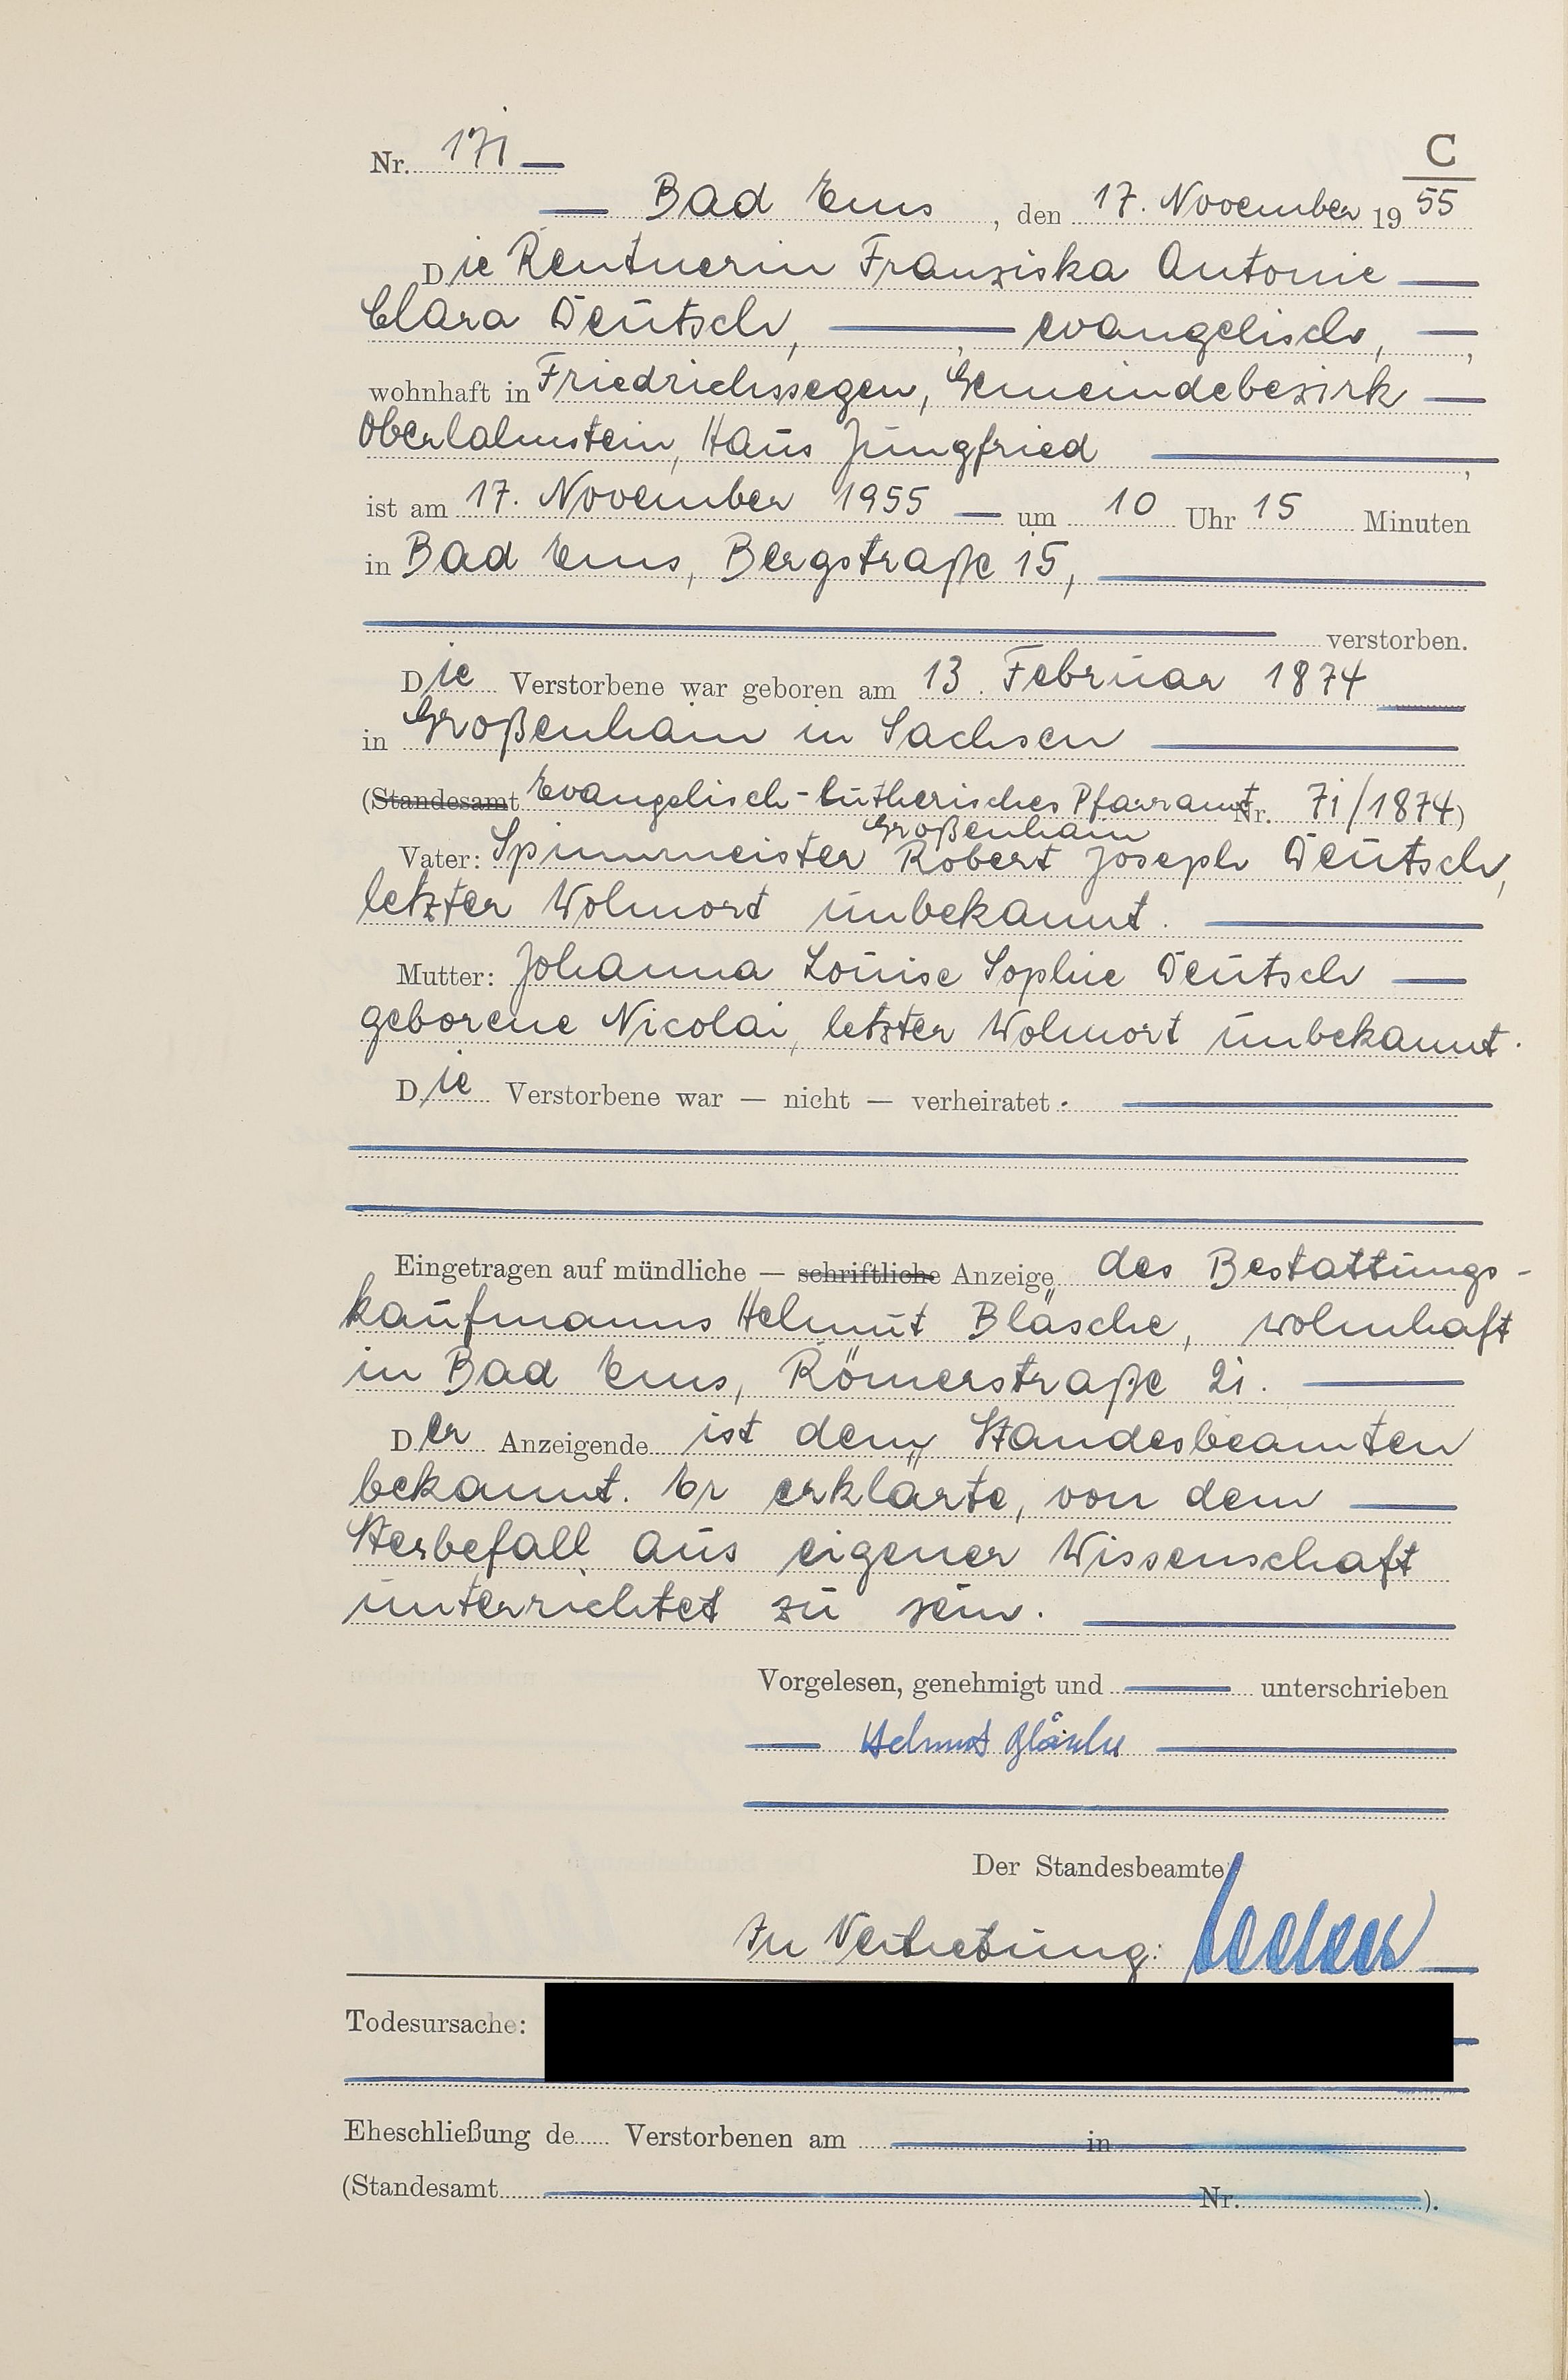 Nr. 171
C
Bad Ems, den 17. November 1955
Die Rentnerin Franziska Antonie
Clara Deutsch, evangelisch,
wohnhaft in Friedrichssegen, Gemeindebezirk
Oberlahnstein, Haus Jungfried,
ist am 17. November 1955 um 10 Uhr 15 Minuten
in Bad Ems, Bergstraße 15,
verstorben.
Die Verstorbene war geboren am 13. Februar 1874
in Großenhain in Sachsen
(Standesamt Evangelisch-lutherisches Pfarramt Nr. 71/1874)
Großenhain
Vater: Spinnmeister Robert Joseph Deutsch,
letzter Wohnort unbekannt.
Mutter: Johanna Louise Sophie Deutsch
geborene Nicolai, letzter Wohnort unbekannt.
Die Verstorbene war — nicht — verheiratet.
Eingetragen auf mündliche — schriftliche Anzeige des Bestattungs-
kaufmanns Helmut Bläsche, wohnhaft
in Bad Ems, Römerstraße 21.
Der Anzeigende ist dem Standesbeamten
bekannt. Er erklärte, von dem
Sterbefall aus eigener Wissenschaft
unterrichtet zu sein.
Vorgelesen, genehmigt und unterschrieben
Helmut Bläsche
Der Standesbeamte
In Vertretung:
Todesursache:
Eheschließung de Verstorbenen am in
(Standesamt Nr. ).